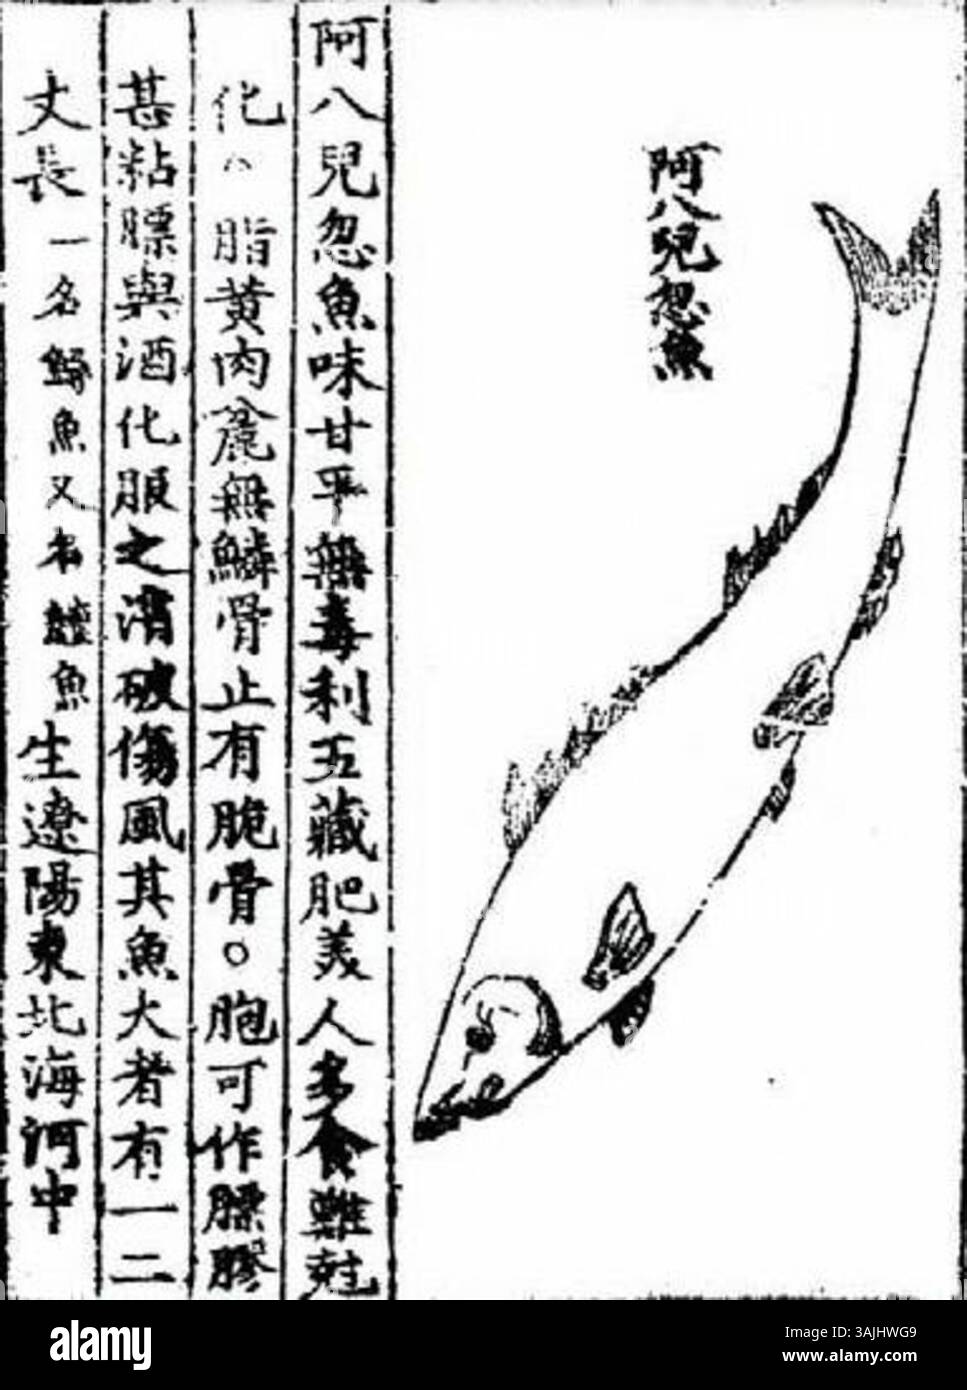 阿八兒忽魚
阿八兒忽魚味甘平無毒利五藏肥美人多食難尅
化。脂黄肉麄無鱗骨止有脆骨。胞可作膘膠
甚粘膘與酒化服之消破傷風其魚大者有一二
丈長一名鱘魚又名鱣魚生遼陽東北海河中
alamy
Image ID: 3AJHWG9
www.alamy.com